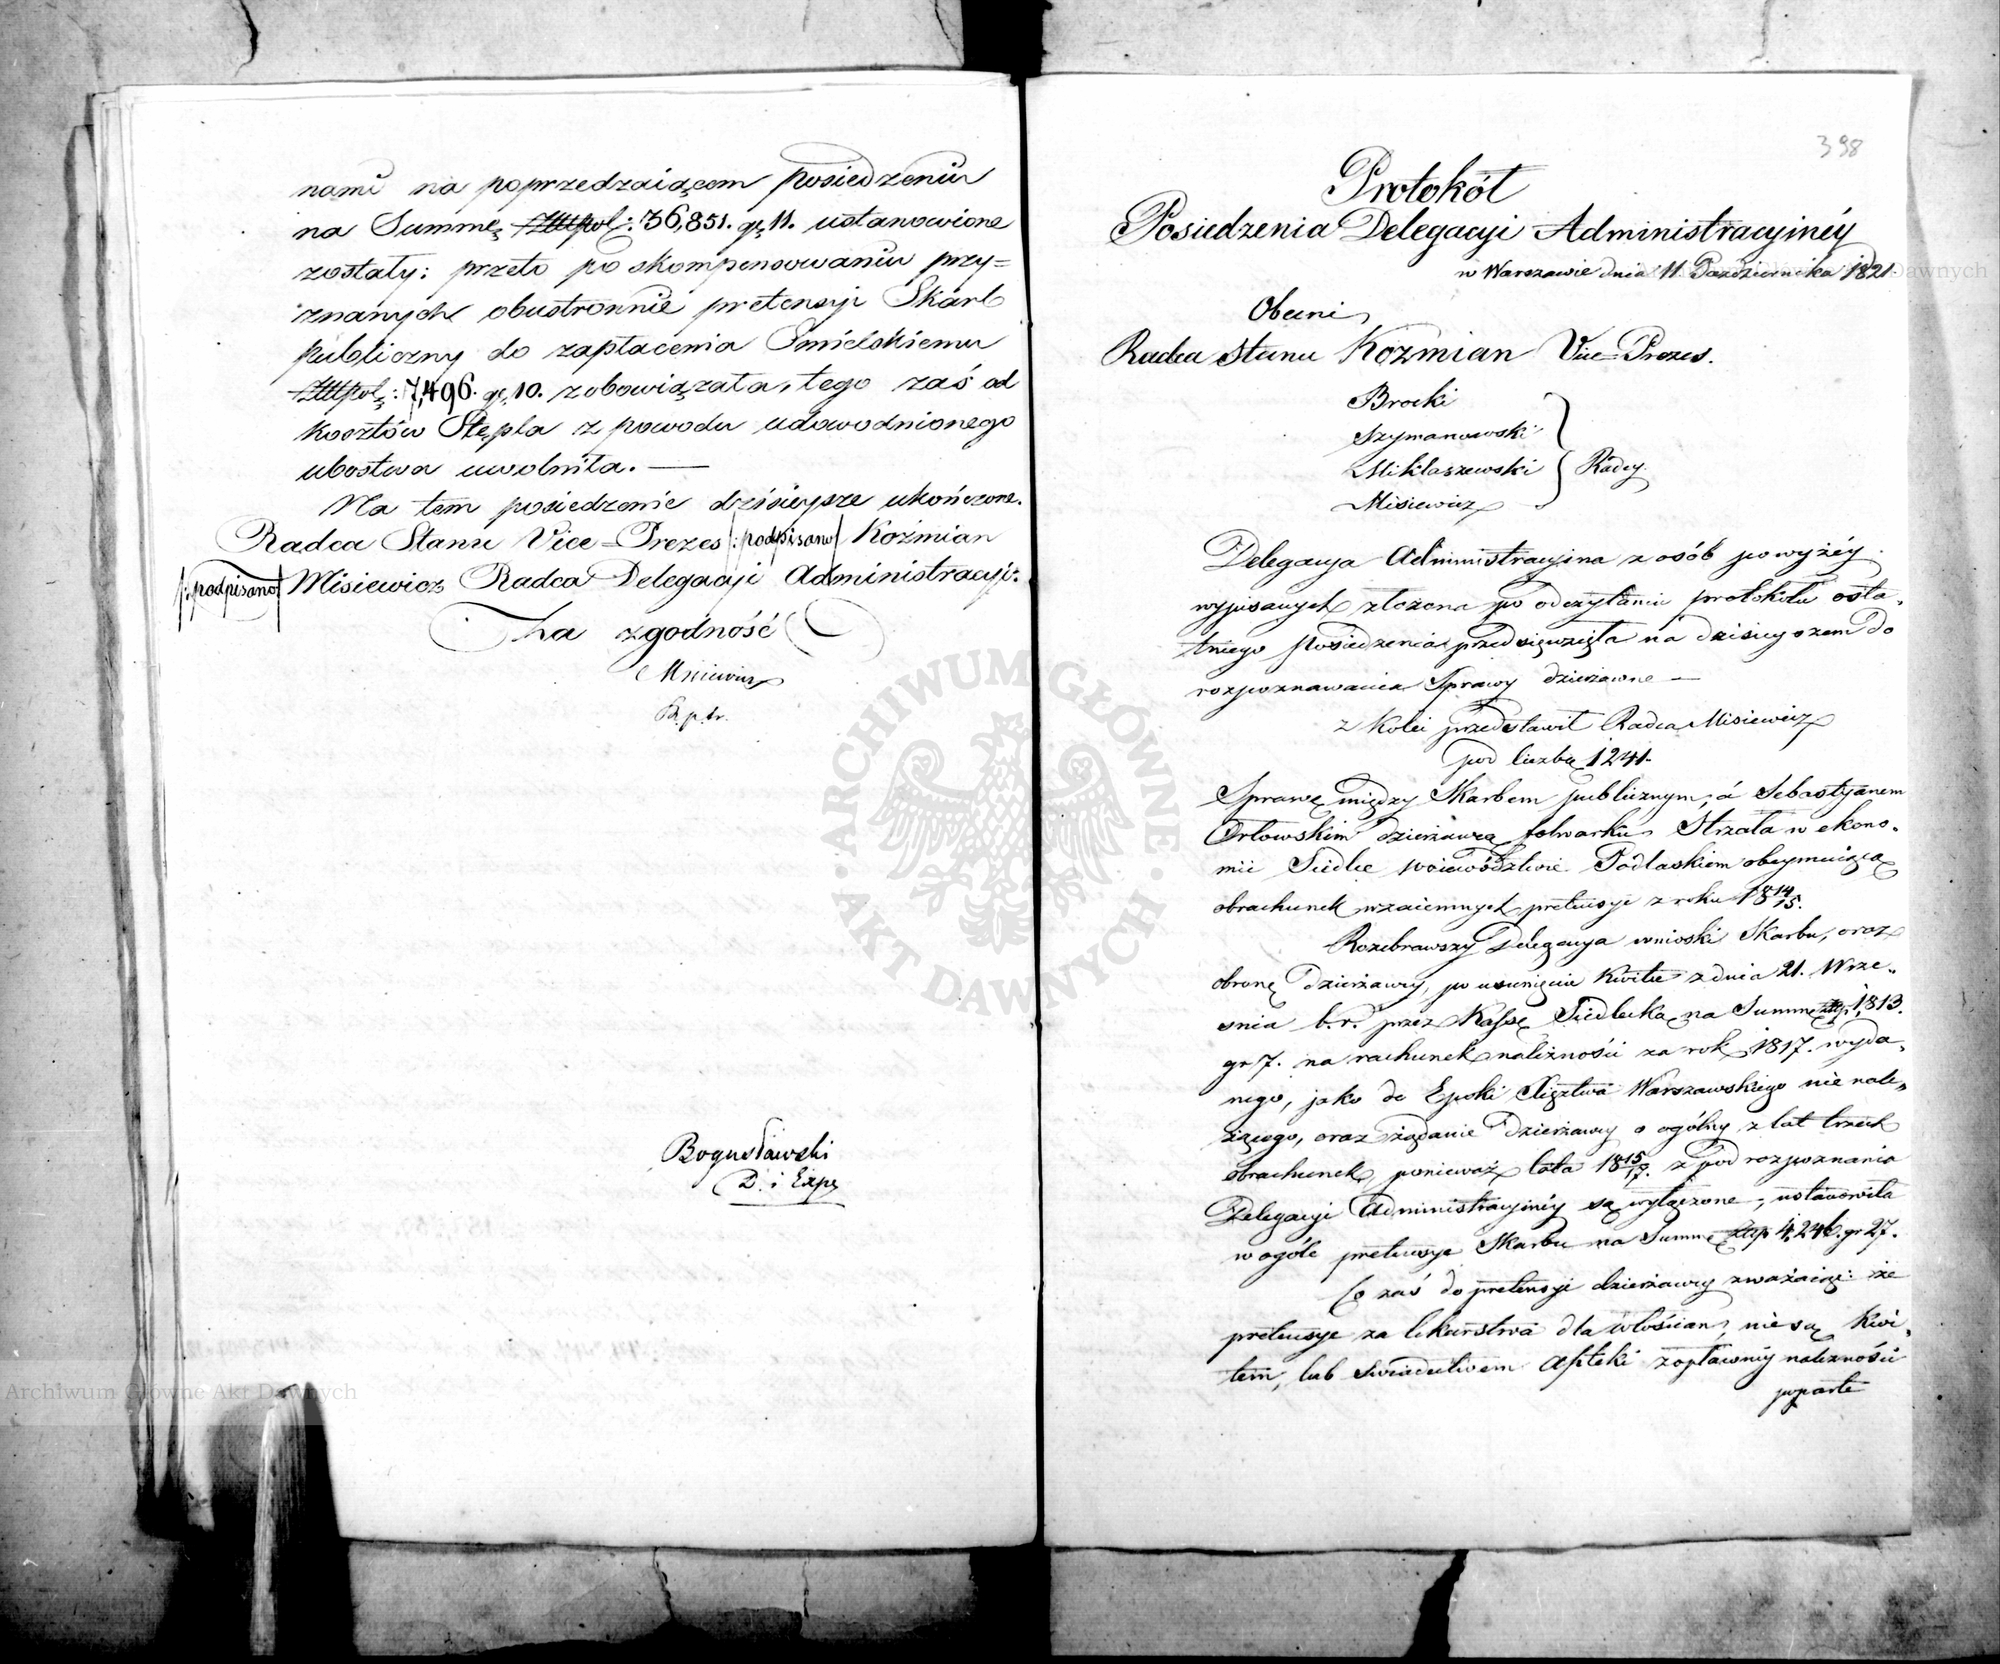 nami na poprzedzaiącem posiedzeniu
na Summę Złtpol: 36,851. gr. 11. ustanowione
zostały: przeto po skompensowaniu przy=
znanych obustronnie pretensyi Skarb
publiczny do zapłacenia Smielskiemu
Złtpol: 7,496. gr. 10. zobowiązała, tego zaś od
kosztów Stępla z powodu udowodnionego
ubostwa uwolniła. —
Na tem posiedzenie dzisieysze ukończone.
Radca Stanu Vice-Prezes /:podpisano/ Koźmian
/:podpisano/ Misiewicz Radca Delegacyi Administracyi:
Za zgodność
Misiewicz
Bogusławski
D. i Exp
398
Protokół
Posiedzenia Delegacyi Administracyinéy
w Warszawie dnia 11 Października 1821
Obecni
Radca Stanu Koźmian Vice-Prezes.
Brocki
Szymanowski
Miklaszewski } Radcy.
Misiewicz
Delegacya Administracyina z osób powyżéy
wypisanych złożona po odczytaniu protokółu osta„
tniego posiedzenia przedsięwzięła na dzisieyszem do
rozpoznawania Sprawy dzierżawne —
z kolei przedstawił Radca Misiewicz
pod liczbą 1241.
Sprawę między Skarbem publicznym, á Sebastyanem
Orłowskim dzierżawcą folwarku Strzała w ekono„
mii Siedlce woiewództwie Podlaskiem obeymuiącą
obrachunek wzaiemnych pretensyi z roku 1814/15.
Rozebrawszy Delegacya wnioski Skarbu, oraz
obronę Dzierżawcy, po usunięciu kwitu z dnia 21. Wrze„
snia b.r. przez Kassę Siedlecką na Summę złp. 1,813.
gr 7. na rachunek należności za rok 1817. wyda„
nego, jako do Epoki Xięztwa Warszawskiego nie nale„
żącego, oraz żądanie Dzierżawcy o ogólny z lat trzech
obrachunek, ponieważ lata 1815/17. z pod rozpoznania
Delegacyi Administracyinéy są wyłączone, ustanowiła
w ogóle pretensye Skarbu na Summę złp 4,246. gr 27.
Co zaś do pretensyi dzierżawcy zważaiąc: że
pretensye za lekarstwa dla włościan, nie są kwi„
tem, lub swiadectwem Apteki zapłaconéy należności
poparte
Archiwum Główne Akt Dawnych
ARCHIWUM GŁÓWNE · AKT DAWNYCH ·
Archiwum Główne Akt Dawnych